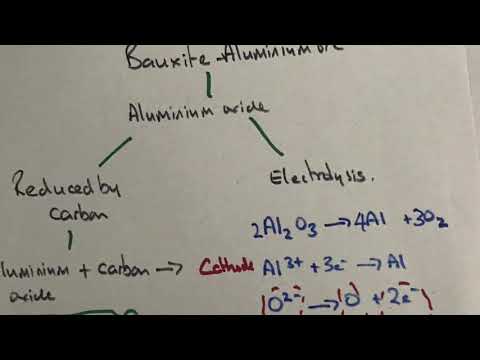 Bauxite - Aluminium ore
Aluminium oxide
Reduced by
carbon
Electrolysis.
2Al₂O₃ → 4Al + 3O₂
luminium + carbon →
oxide
Cathode Al³⁺ + 3e⁻ → Al
O²⁻ → O + 2e⁻